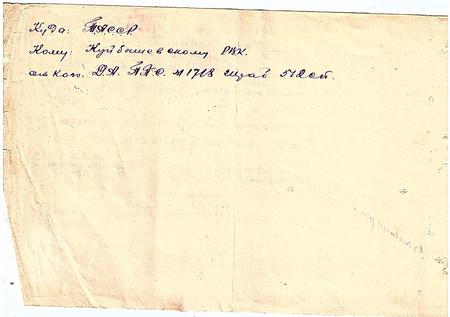 Куда: ТАССР.
Кому: Куйбышевскому РВК.
от Кого: Д.А. ППС. №1718 штаб 512 сп.